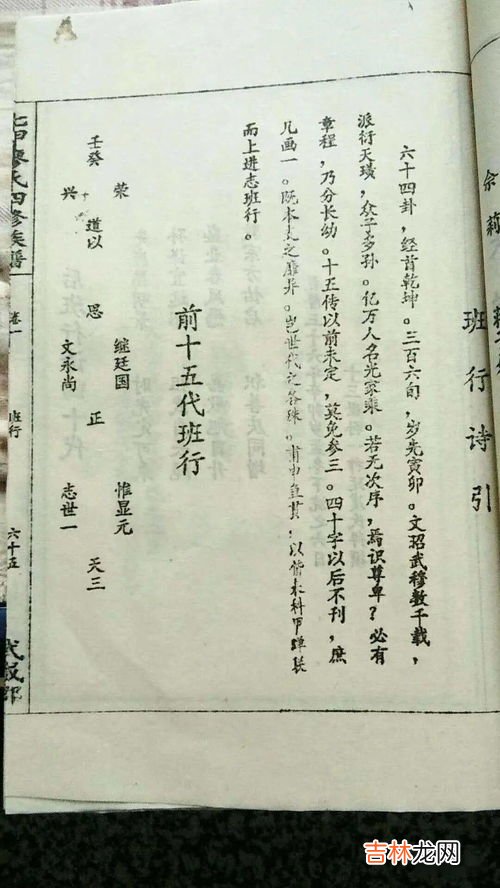 班行诗引
六十四卦,经首乾坤。三百六旬,岁先寅卯。文昭武穆数千载,
派衍天璜,众子多孙。亿万人名光冢乘。若无次序,焉识尊卑?必有
章程,乃分长幼。十王传以前未定,莫免参三。四十字以后不刊,庶
几画一。既本支之靡异。岂世代之各殊。
而上进志班行。
前十五代班行
荣 继廷国 惟显元
壬癸 道以 思 正 天三
兴 文永尚 志世一
廖氏四修族谱
班行
六十五
武威郡
吉林龙网